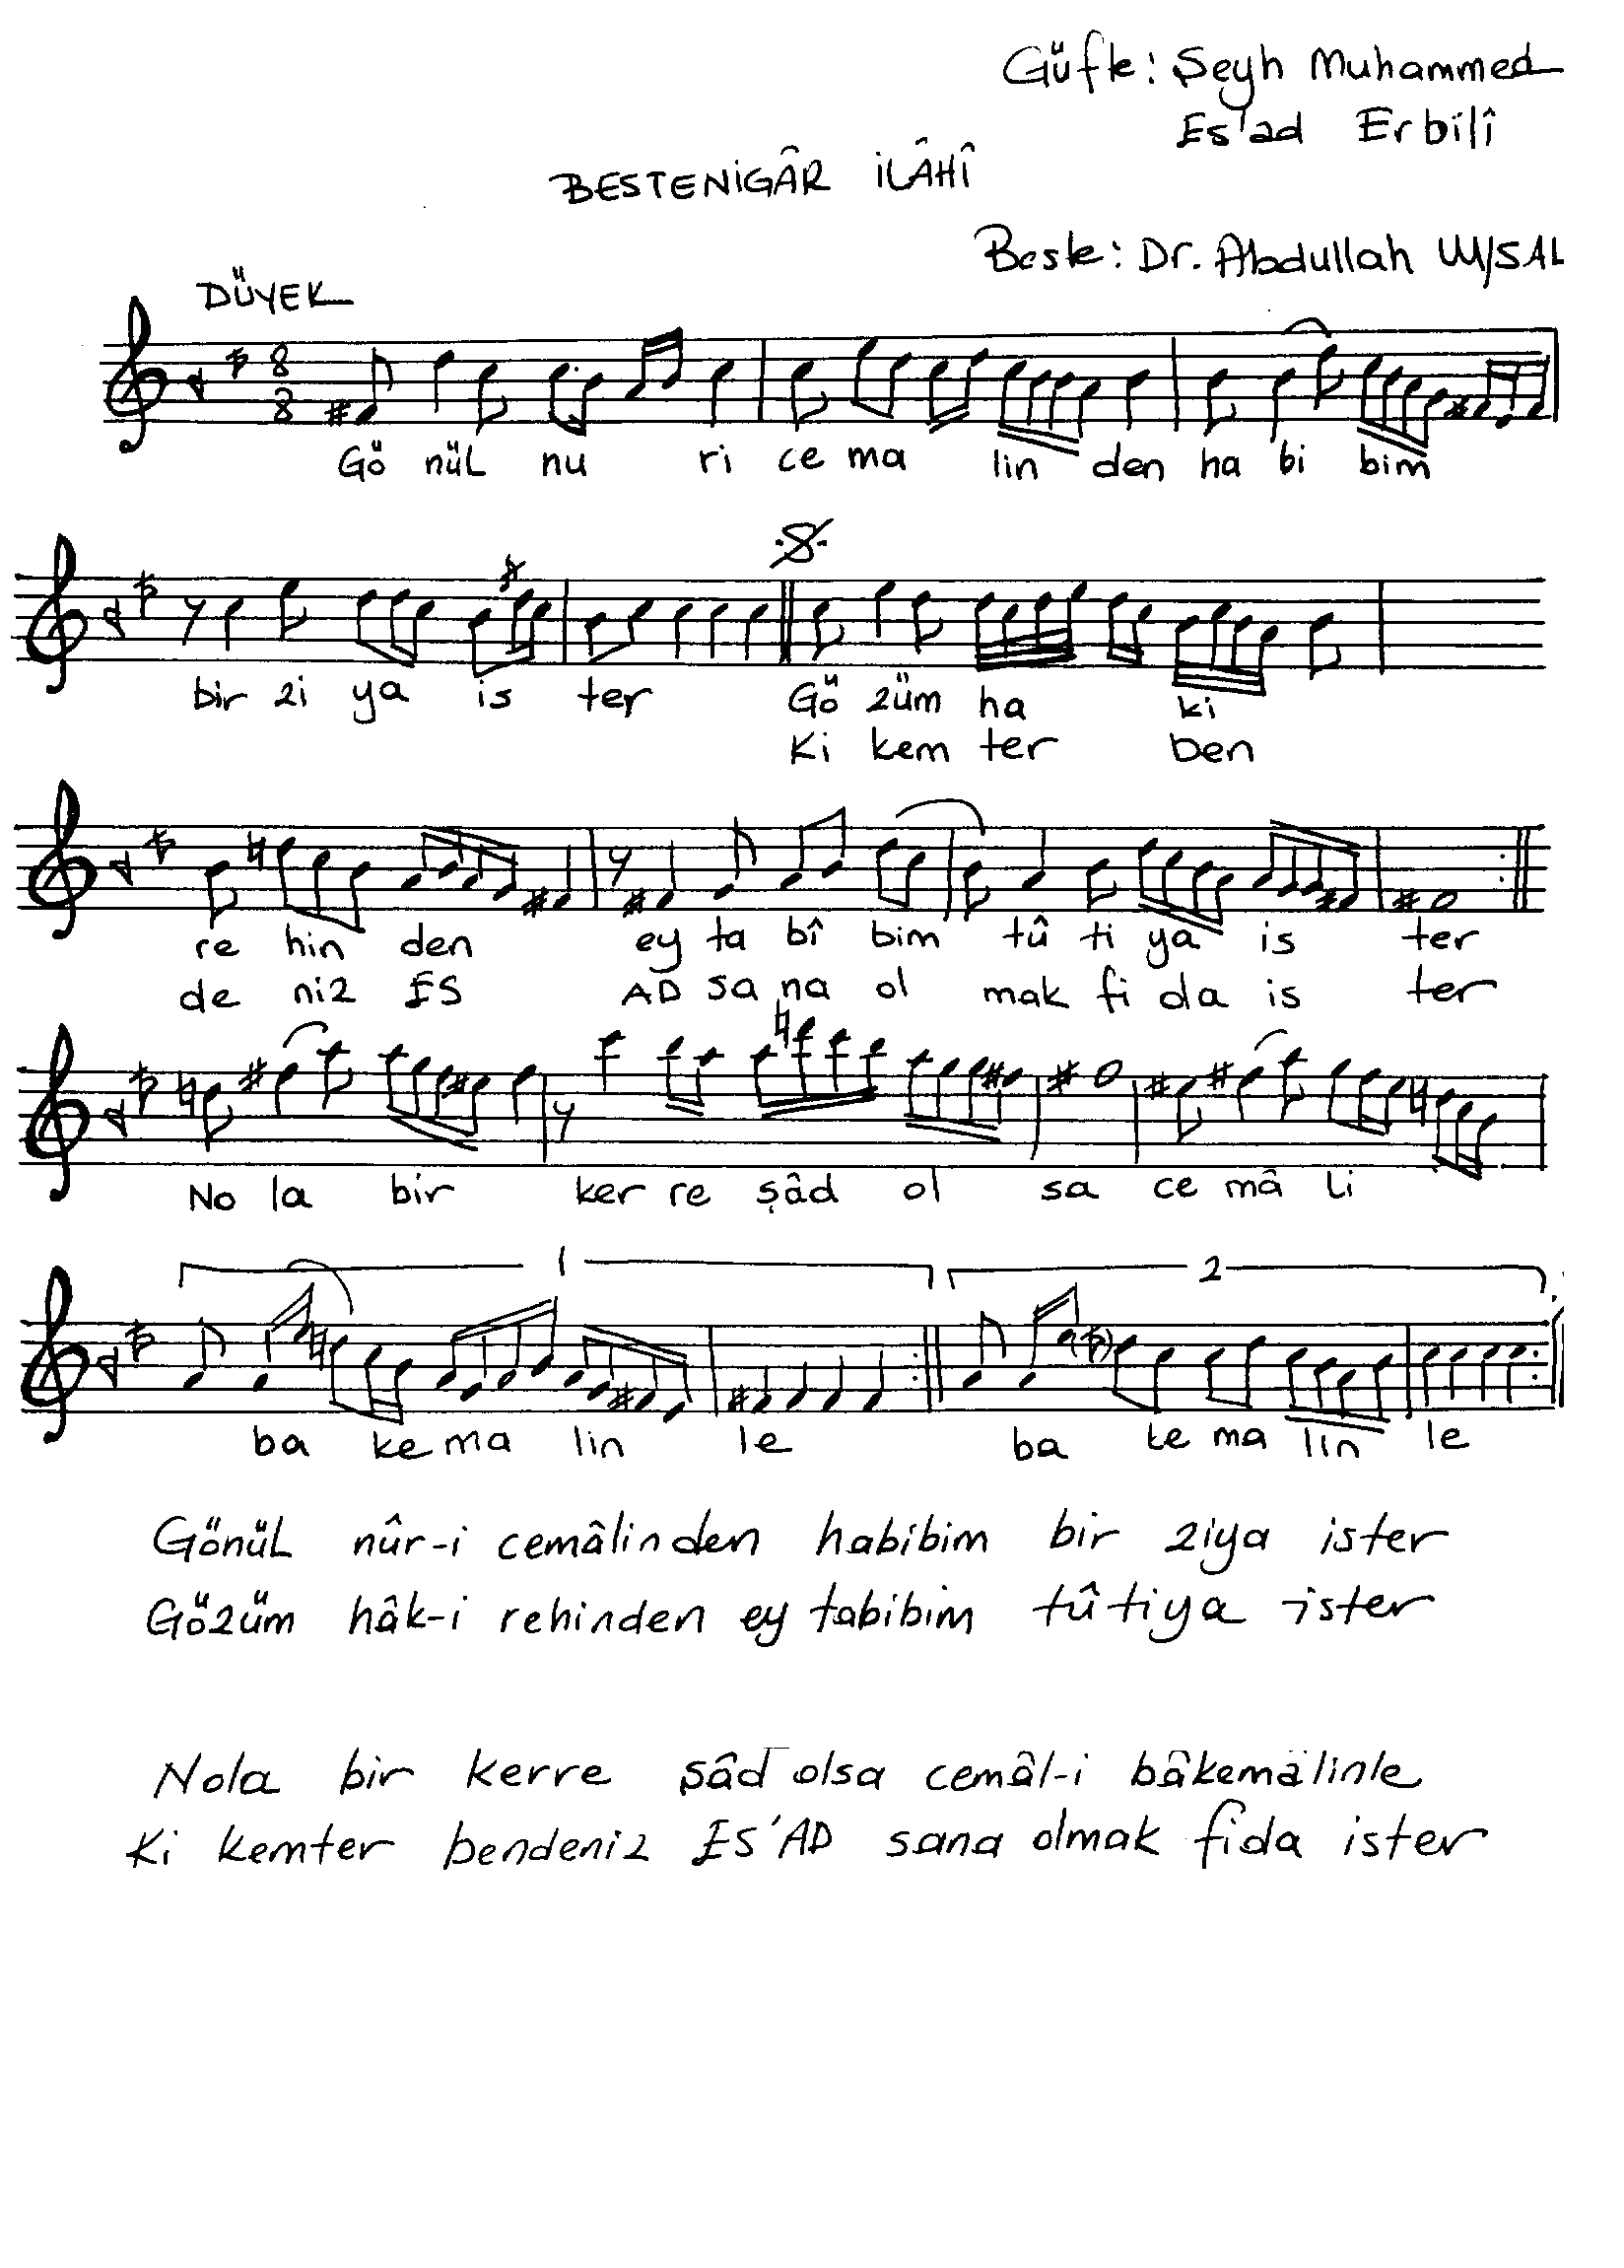 Güfte: Şeyh Muhammed
Es'ad Erbilî
BESTENİGÂR İLÂHÎ
Beste: Dr. Abdullah UYSAL
DÜYEK
8
8
Gö nül nu ri ce ma lin den ha bi bim
bir zi ya is ter Gö züm ha ki
Ki kem ter ben
re hin den ey ta bî bim tû ti ya is ter
de niz ES AD sa na ol mak fi da is ter
No la bir ker re şâd ol sa ce mâ li
1 2
ba ke ma lin le ba ke ma lin le
Gönül nûr-i cemâlinden habibim bir ziya ister
Gözüm hâk-i rehinden ey tabibim tûtiya ister
Nola bir kerre şâd olsa cemâl-i bâkemâlinle
Ki kemter bendeniz ES'AD sana olmak fida ister